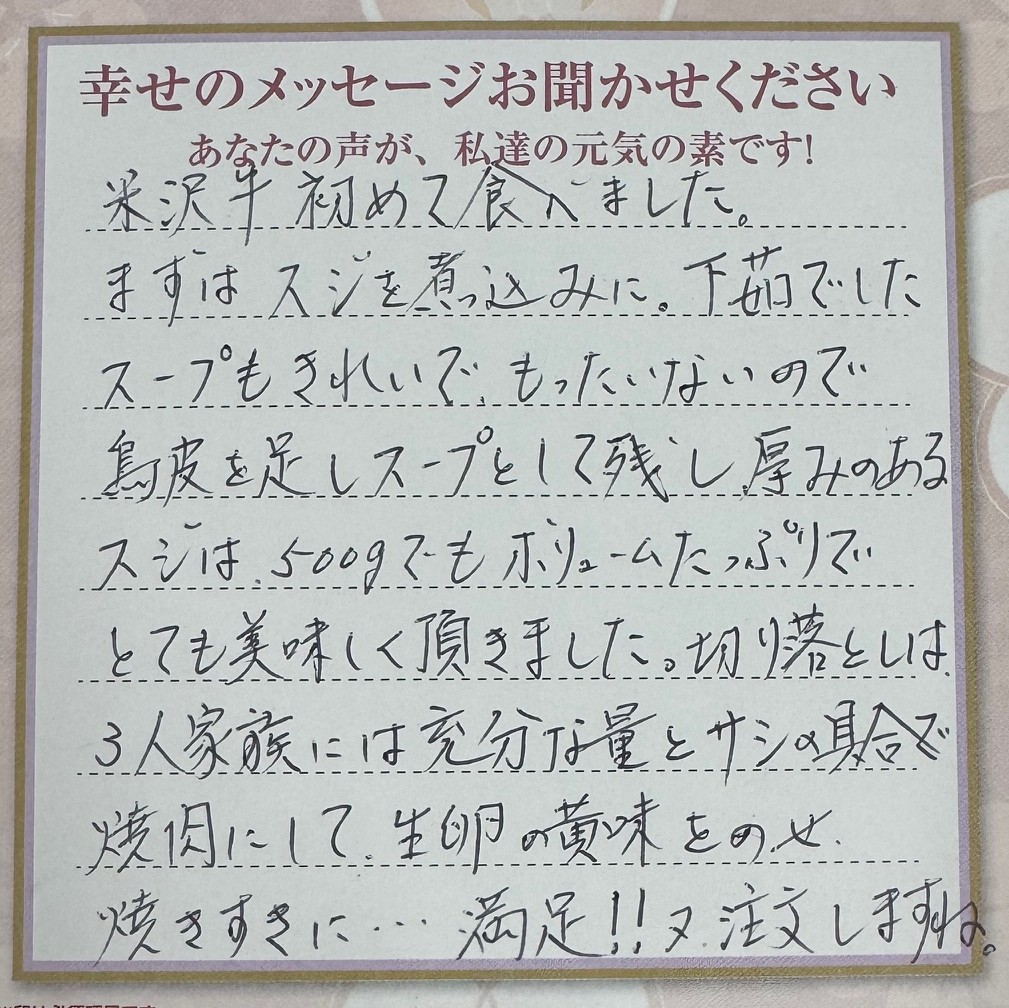 幸せのメッセージお聞かせください
あなたの声が、私達の元気の素です!
米沢牛初めて食べました。
まずはスジを煮っ込みに。下茹でした
スープもきれいで、もったいないので
鳥皮を足しスープとして残し、厚みのある
スジは、500gでもボリュームたっぷりで
とても美味しく頂きました。切り落としは、
3人家族には充分な量とサシの具合で
焼肉にして、生卵の黄味をのせ、
焼きすきに… 満足!!又、注文しますね。